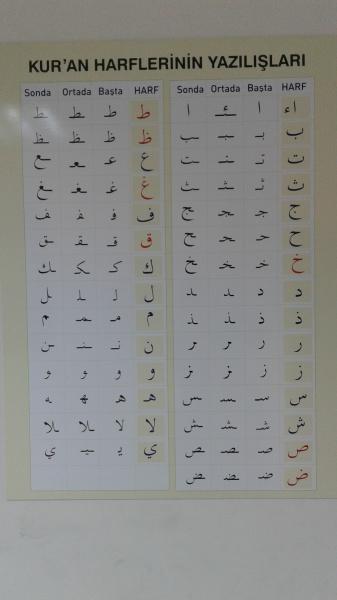 KUR'AN HARFLERİNİN YAZILIŞLARI
Sonda Ortada Başta HARF Sonda Ortada Başta HARF
ـط ـطـ طـ ط ا ـئـ ا اء
ـظ ـظـ ظـ ظ ـب ـبـ بـ ب
ـع ـعـ عـ ع ـت ـتـ تـ ت
ـغ ـغـ غـ غ ـث ـثـ ثـ ث
ـف ـفـ فـ ف ـج ـجـ جـ ج
ـق ـقـ قـ ق ـح ـحـ حـ ح
ـك ـكـ كـ ك ـخ ـخـ خـ خ
ـل ـلـ لـ ل ـد ـد د د
ـم ـمـ مـ م ـذ ـذ ذ ذ
ـن ـنـ نـ ن ـر ـر ر ر
و و و و ـز ـز ز ز
ـه ـهـ هـ هـ ـس ـسـ سـ س
ـلا ـلا لا لا ـش ـشـ شـ ش
ي ـيـ يـ ي ـص ـصـ صـ ص
ـض ـضـ ضـ ض